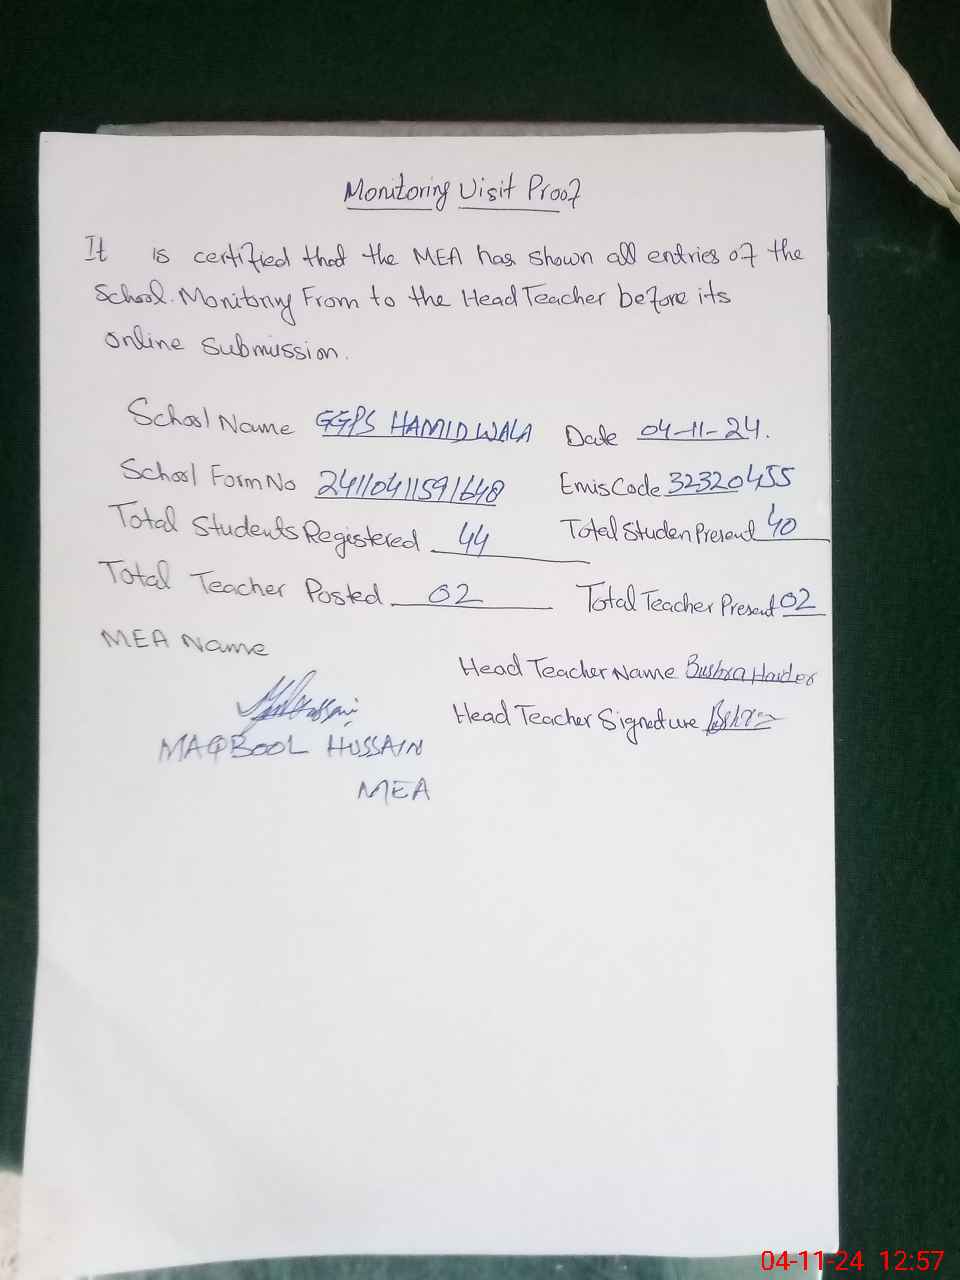 Monitoring Visit Proof
It is certified that the MEA has shown all entries of the
School Monitoring From to the Head Teacher before its
online submission.
School Name GGPS HAMIDWALA Date 04-11-24.
School Form No 24110411591648 Emis Code 32320455
Total Students Registered 44 Total Studen Present 40
Total Teacher Posted 02 Total Teacher Present 02
MEA Name
Head Teacher Name Bushra Haider
Head Teacher Signature
MAQBOOL HUSSAIN
MEA
04-11-24 12:57